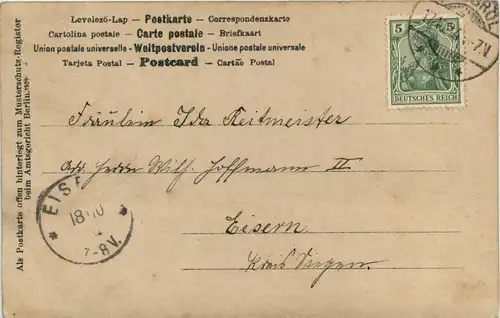 Levelező-Lap — Postkarte — Correspondenzkarte
Cartolina postale — Carte postale — Briefkaart
Union postale universelle - Weltpostverein - Unione postale universale
Tarjeta Postal — Postcard — Cartão Postal
Als Postkarte offen hinterlegt zum Musterschutz-Register
beim Amtsgericht Berlin.
5
DEUTSCHES REICH
Fräulein Ida Reitmeister
Adr. Herrn Wilh. Hoffmann II
Eisern.
Kreis Siegen.
EISE
18 10
7-8V.